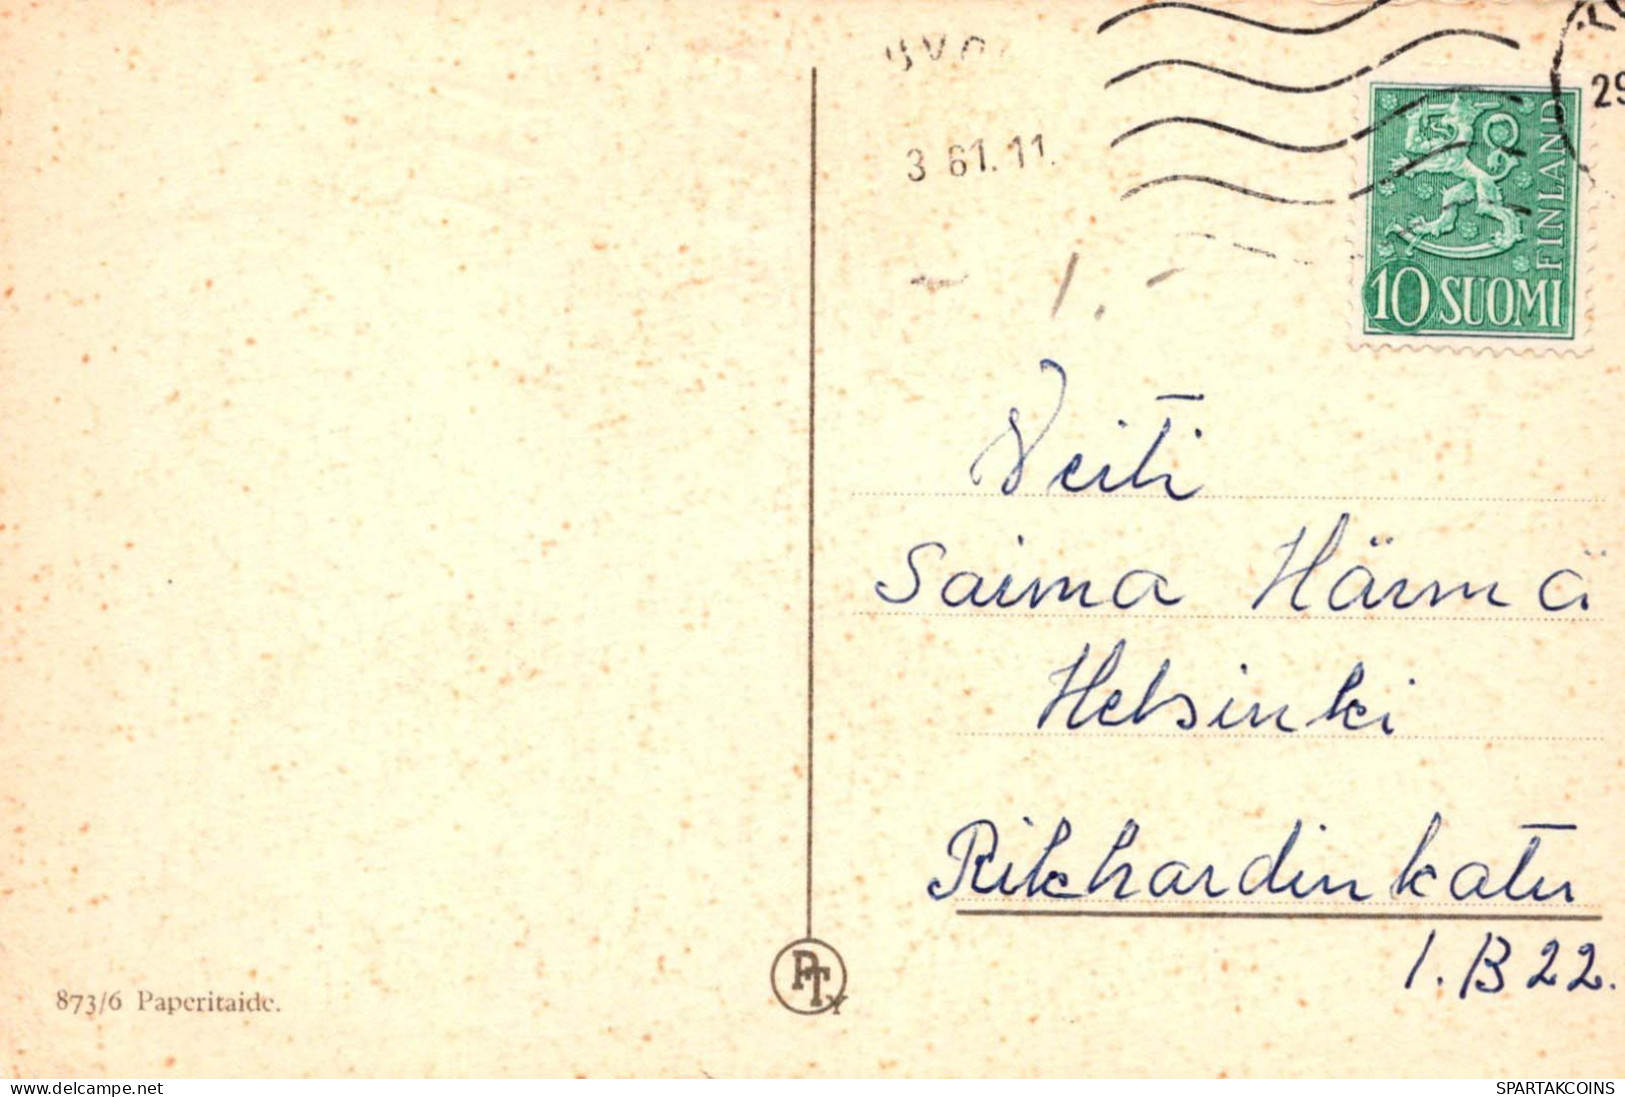 3 61.11.
29
FINLAND
10 SUOMI
Veiti
Saima Härmä
Helsinki
Rikhardinkatu
1. B 22.
PT
Y
873/6 Paperitaide.
www.delcampe.net
SPARTAKCOINS